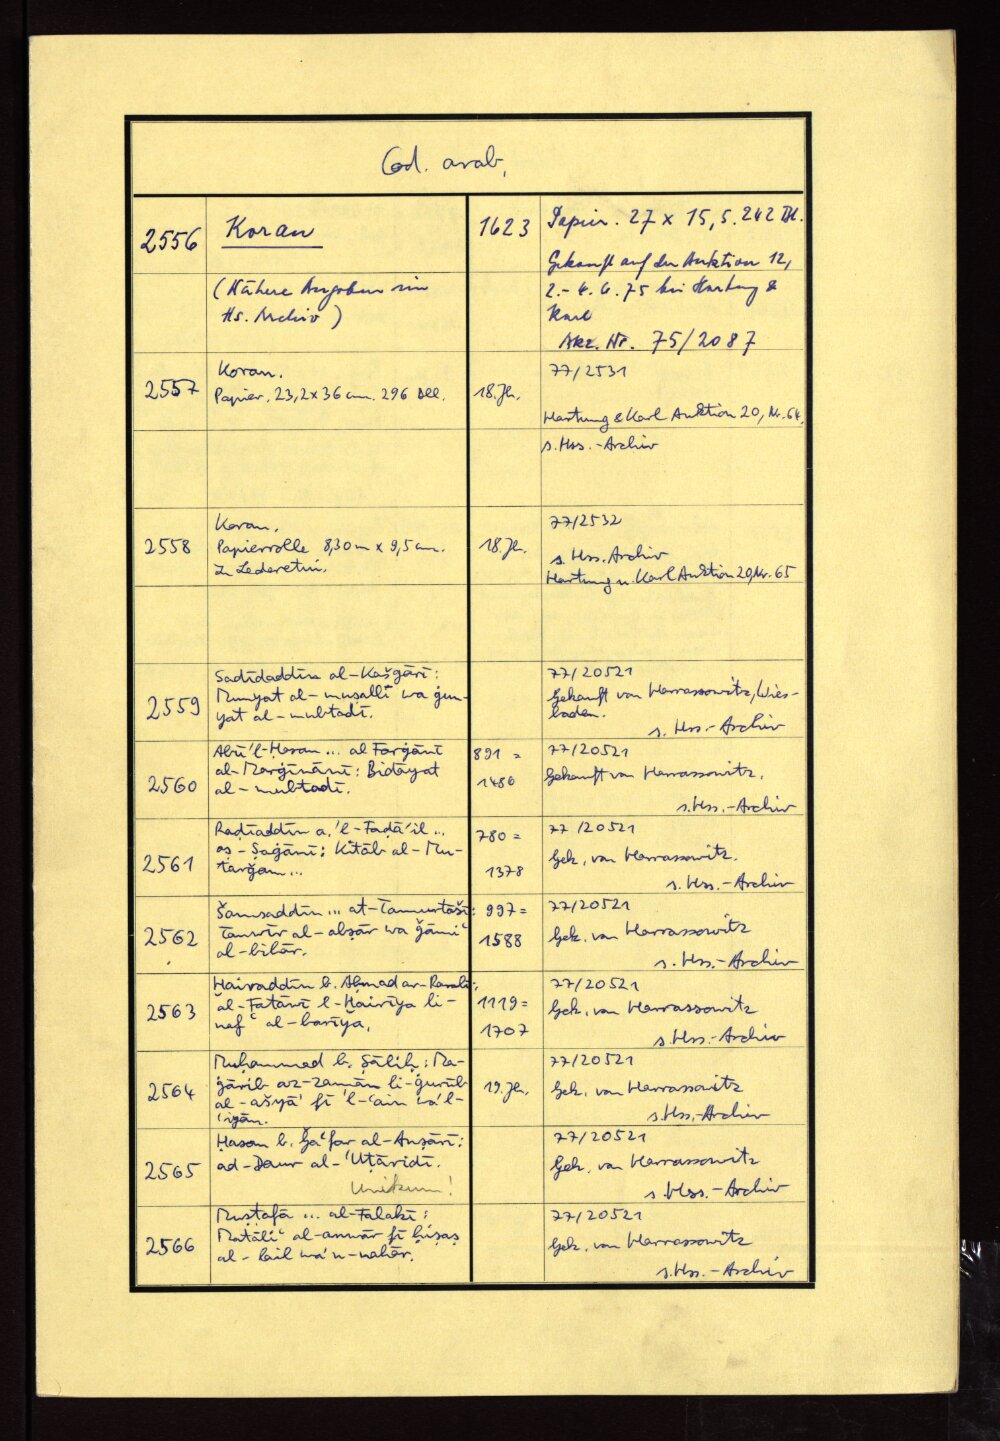 Cod. arab.
2556
Koran
(Nähere Angaben im
Hs. Archiv)
1623
Papier. 27 x 15,5. 242 Bl.
Gekauft auf der Auktion 12,
2.-4.6.75 bei Hartung &
Karl
Akz. Nr. 75/2087
2557
Koran.
Papier. 23,2 x 36 cm. 296 Bll.
18. Jh.
77/2531
Hartung & Karl Auktion 20, Nr. 64.
s. Hss.-Archiv
2558
Koran.
Papierrolle 8,30 m x 9,5 cm.
In Lederetui.
18. Jh.
77/2532
s. Hss. Archiv
Hartung u. Karl Auktion 20, Nr. 65
2559
Sadīdaddīn al-Kašġārī:
Munyat al-muṣallī wa ġun-
yat al-mubtadī.
77/20521
Gekauft von Harrassowitz, Wies-
baden.
s. Hss.-Archiv
2560
Abū'l-Ḥasan ... al Farġānī
al-Marġīnānī: Bidāyat
al-mubtadī.
891 =
1486
77/20521
Gekauft von Harrassowitz.
s. Hss.-Archiv
2561
Raḍīaddīn a. 'l-Faḍā'il ...
aṣ-Ṣaġānī: Kitāb al-Mu-
tarǧam...
780 =
1378
77/20521
Gek. von Harrassowitz.
s. Hss.-Archiv
2562
Šamsaddīn ... at-Tamurtāšī:
Tanwīr al-abṣār wa ǧāmiʿ
al-biḥār.
997 =
1588
77/20521
Gek. von Harrassowitz
s. Hss.-Archiv
2563
Ḫairaddīn b. Aḥmad ar-Ramlī:
al-Fatāwī l-Ḫairīya li-
nafʿ al-barīya.
1119 =
1707
77/20521
Gek. von Harrassowitz
s. Hss.-Archiv
2564
Muḥammad b. Ṣāliḥ: Ma-
ġārib az-zamān li-ġurūb
al-ašyā' fī 'l-ʿain wa'l-
ʿiyān.
19. Jh.
77/20521
Gek. von Harrassowitz
s. Hss.-Archiv
2565
Ḥasan b. Ǧaʿfar al-Anṣārī:
ad-Daur al-ʿUṭāridī.
Unikum!
77/20521
Gek. von Harrassowitz
s. Hss.-Archiv
2566
Muṣṭafā ... al-Falakī:
Maṭāliʿ al-anwār fī ḥiṣaṣ
al-lail wa'n-nahār.
77/20521
Gek. von Harrassowitz
s. Hss.-Archiv